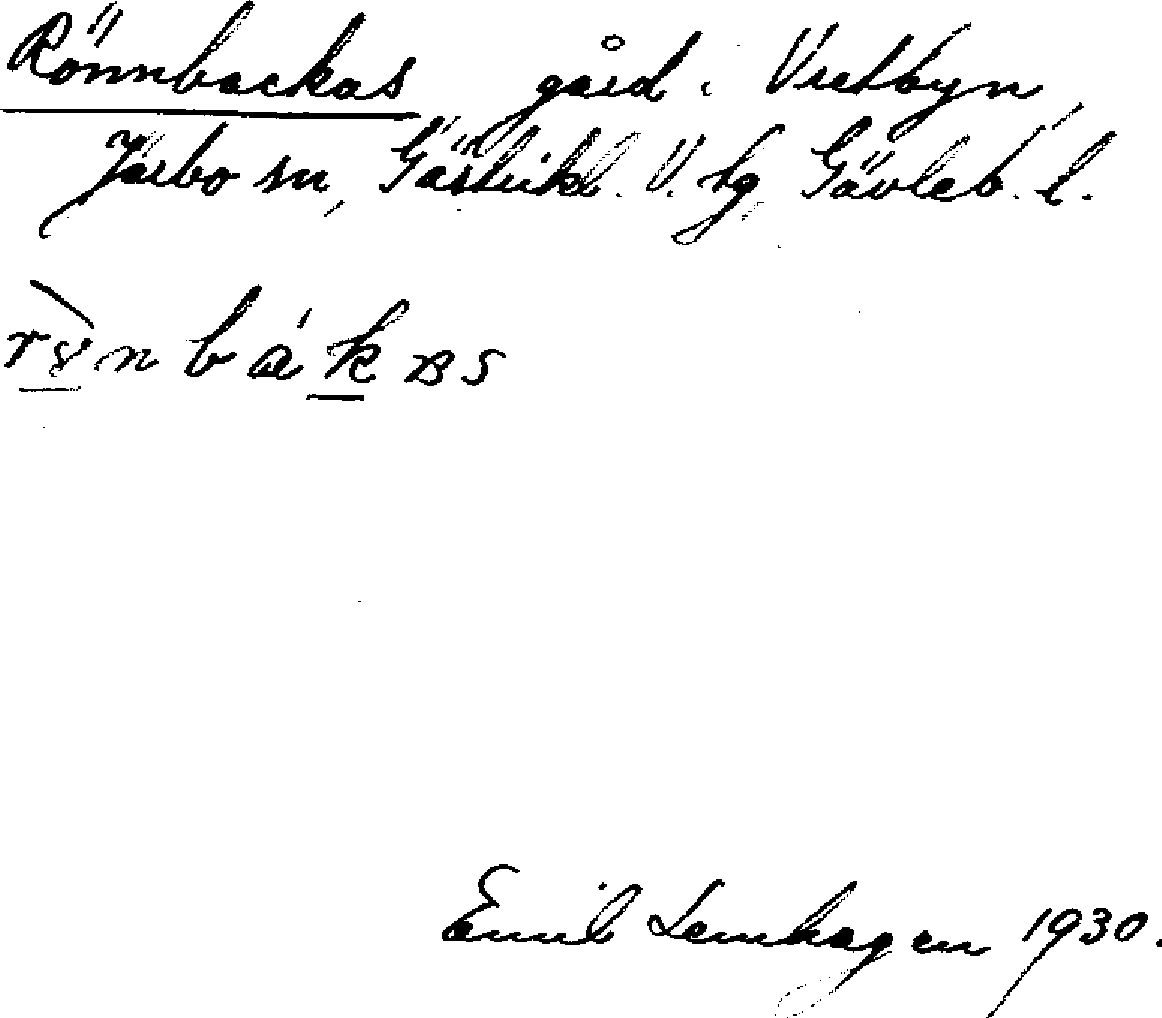 Rönnbackas gård i Vretbyn,
Järbo sn, Gästrikl. V. tg, Gävleb. l.
Emil Lenhagen 1930.